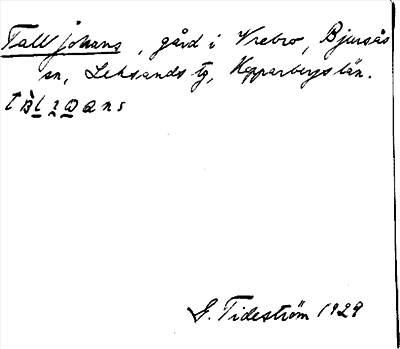 Talljohans, gård i Vrebro, Bjursås
sn, Leksands tg, Kopparbergs län.
S. Tideström 1929